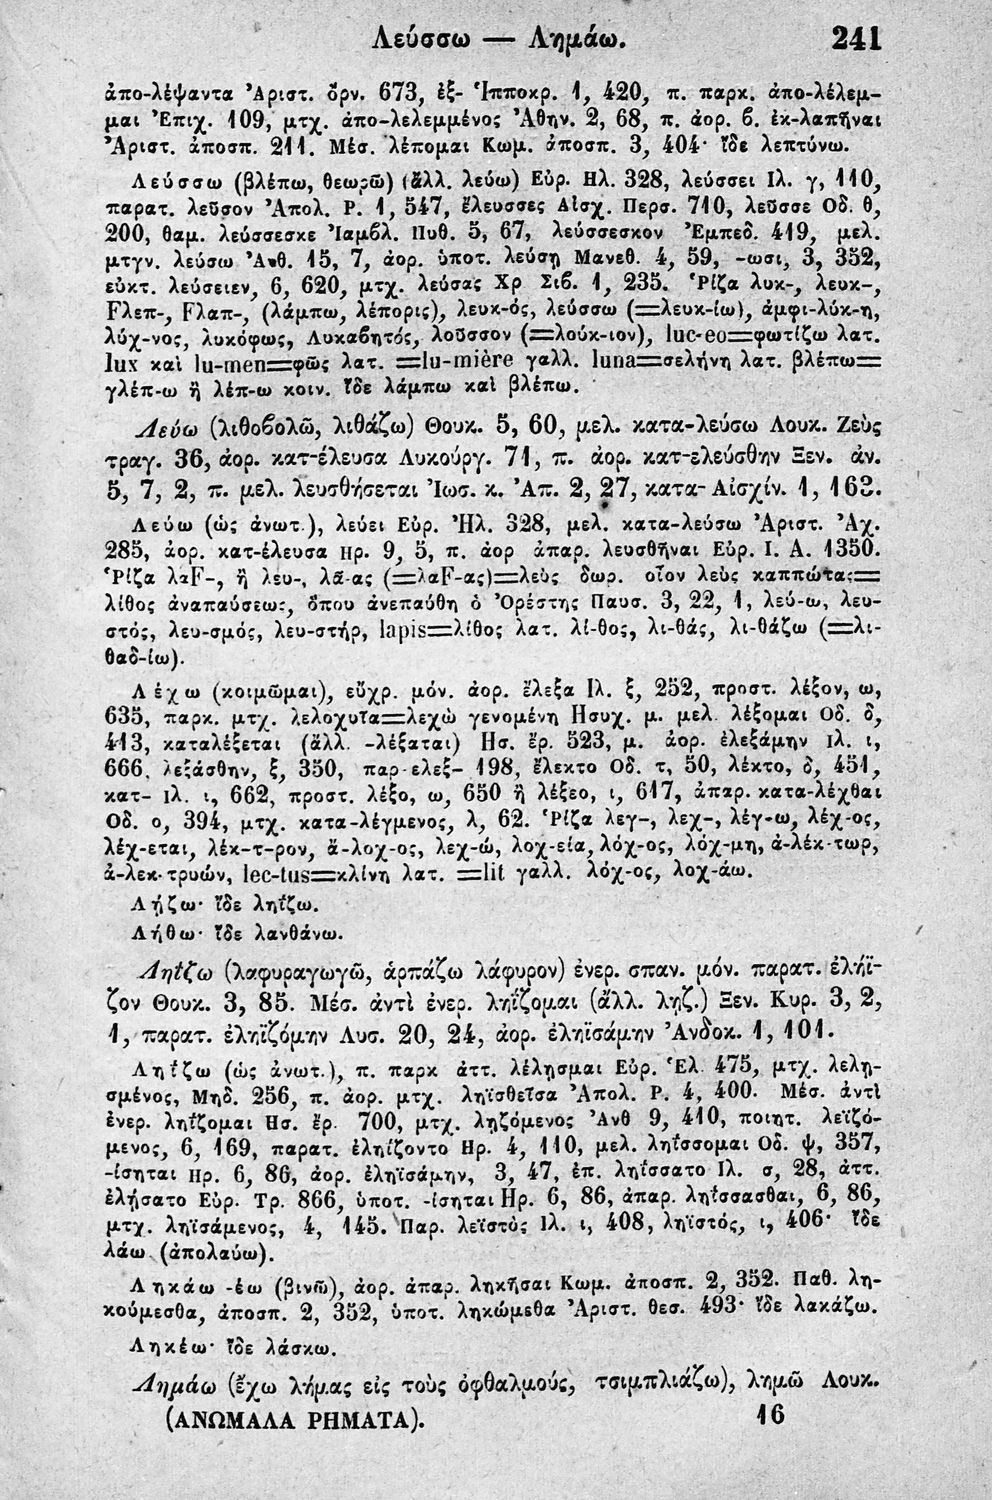 Λεύσσω — Λημάω. 241
ἀπο-λέψαντα Ἀριστ. ὄρν. 673, ἐξ- Ἱπποκρ. 1, 420, π. παρκ. ἀπο-λέλεμ-
μαι Ἐπιχ. 109, μτχ. ἀπο-λελεμμένος Ἀθην. 2, 68, π. ἀορ. ϐ. ἐκ-λαπῆναι
Ἀριστ. ἀποσπ. 211. Μέσ. λέπομαι Κωμ. ἀποσπ. 3, 404· ἴδε λεπτύνω.
Λεύσσω (βλέπω, θεωρῶ) (ἄλλ. λεύω) Εὐρ. Ηλ. 328, λεύσσει Ιλ. γ, 110,
παρατ. λεῦσον Ἀπολ. Ρ. 1, 547, ἔλευσσες Αἰσχ. Περσ. 710, λεῦσσε Οδ. θ,
200, θαμ. λεύσσεσκε Ἰαμϐλ. Πυθ. 5, 67, λεύσσεσκον Ἐμπεδ. 419, μελ.
μτγν. λεύσω Ἀνθ. 15, 7, ἀορ. ὑποτ. λεύσῃ Μανεθ. 4, 59, -ωσι, 3, 352,
εὐκτ. λεύσειεν, 6, 620, μτχ. λεύσας Χρ Σιϐ. 1, 235. Ῥίζα λυκ-, λευκ-,
Fλεπ-, Fλαπ-, (λάμπω, λέπορις), λευκ-ός, λεύσσω (=λευκ-ίω), ἀμφι-λύκ-η,
λύχ-νος, λυκόφως, Λυκαϐητός, λοῦσσον (=λούκ-ιον), luc-eo=φωτίζω λατ.
lux καὶ lu-men=φῶς λατ. =lu-mière γαλλ. luna=σελήνη λατ. βλέπω=
γλέπ-ω ἢ λέπ-ω κοιν. ἴδε λάμπω καὶ βλέπω.
Λεύω (λιθοϐολῶ, λιθάζω) Θουκ. 5, 60, μελ. κατα-λεύσω Λουκ. Ζεὺς
τραγ. 36, ἀορ. κατ-έλευσα Λυκούργ. 71, π. ἀορ. κατ-ελεύσθην Ξεν. ἀν.
5, 7, 2, π. μελ. λευσθήσεται Ἰωσ. κ. Ἀπ. 2, 27, κατα- Αἰσχίν. 1, 163.
Λεύω (ὡς ἀνωτ.), λεύει Εὐρ. Ἠλ. 328, μελ. κατα-λεύσω Ἀριστ. Ἀχ.
285, ἀορ. κατ-έλευσα Ηρ. 9, 5, π. ἀορ ἀπαρ. λευσθῆναι Εὐρ. Ι. Α. 1350.
Ῥίζα λαF-, ἢ λευ-, λᾶ-ας (=λαF-ας)=λεὺς δωρ. οἷον λεὺς καππώτας=
λίθος ἀναπαύσεως, ὅπου ἀνεπαύθη ὁ Ὀρέστης Παυσ. 3, 22, 1, λεύ-ω, λευ-
στός, λευ-σμός, λευ-στήρ, lapis=λίθος λατ. λί-θος, λι-θάς, λι-θάζω (=λι-
θαδ-ίω).
Λέχω (κοιμῶμαι), εὔχρ. μόν. ἀορ. ἔλεξα Ιλ. ξ, 252, προστ. λέξον, ω,
635, παρκ. μτχ. λελοχυῖα=λεχὼ γενομένη Ησυχ. μ. μελ. λέξομαι Οδ. δ,
413, καταλέξεται (ἄλλ. -λέξαται) Ησ. ἔρ. 523, μ. ἀορ. ἐλεξάμην Ιλ. ι,
666, λεξάσθην, ξ, 350, παρ-ελεξ- 198, ἔλεκτο Οδ. τ, 50, λέκτο, δ, 451,
κατ- Ιλ. ι, 662, προστ. λέξο, ω, 650 ἢ λέξεο, ι, 617, ἀπαρ. κατα-λέχθαι
Οδ. ο, 394, μτχ. κατα-λέγμενος, λ, 62. Ῥίζα λεγ-, λεχ-, λέγ-ω, λέχ-ος,
λέχ-εται, λέκ-τ-ρον, ἄ-λοχ-ος, λεχ-ώ, λοχ-εία, λόχ-ος, λόχ-μη, ἀ-λέκ-τωρ,
ἀ-λεκ-τρυών, lec-tus=κλίνη λατ. =lit γαλλ. λόχ-ος, λοχ-άω.
Λῄζω· ἴδε ληΐζω.
Λήθω· ἴδε λανθάνω.
Ληΐζω (λαφυραγωγῶ, ἁρπάζω λάφυρον) ἐνερ. σπαν. μόν. παρατ. ἐλήϊ-
ζον Θουκ. 3, 85. Μέσ. ἀντὶ ἐνερ. ληΐζομαι (ἄλλ. λῃζ.) Ξεν. Κυρ. 3, 2,
1, παρατ. ἐληϊζόμην Λυσ. 20, 24, ἀορ. ἐληϊσάμην Ἀνδοκ. 1, 101.
Ληΐζω (ὡς ἀνωτ.), π. παρκ ἀττ. λέλῃσμαι Εὐρ. Ἑλ. 475, μτχ. λελῃ-
σμένος, Μηδ. 256, π. ἀορ. μτχ. ληϊσθεῖσα Ἀπολ. Ρ. 4, 400. Μέσ. ἀντὶ
ἐνερ. ληΐζομαι Ησ. ἔρ. 700, μτχ. λῃζόμενος Ἀνθ 9, 410, ποιητ. λεϊζό-
μενος, 6, 169, παρατ. ἐληίζοντο Ηρ. 4, 110, μελ. ληΐσσομαι Οδ. ψ, 357,
-ίσηται Ηρ. 6, 86, ἀορ. ἐληϊσάμην, 3, 47, ἐπ. ληΐσσατο Ιλ. σ, 28, ἀττ.
ἐλήσατο Εὐρ. Τρ. 866, ὑποτ. -ίσηται Ηρ. 6, 86, ἀπαρ. ληΐσσασθαι, 6, 86,
μτχ. ληϊσάμενος, 4, 145. Παρ. λεϊστὸς Ιλ. ι, 408, ληϊστός, ι, 406· ἴδε
λάω (ἀπολαύω).
Ληκάω -έω (βινῶ), ἀορ. ἀπαρ. ληκῆσαι Κωμ. ἀποσπ. 2, 352. Παθ. λη-
κούμεσθα, ἀποσπ. 2, 352, ὑποτ. ληκώμεθα Ἀριστ. θεσ. 493· ἴδε λακάζω.
Ληκέω· ἴδε λάσκω.
Λημάω (ἔχω λήμας εἰς τοὺς ὀφθαλμούς, τσιμπλιάζω), λημῶ Λουκ.
(ΑΝΩΜΑΛΑ ΡΗΜΑΤΑ). 16